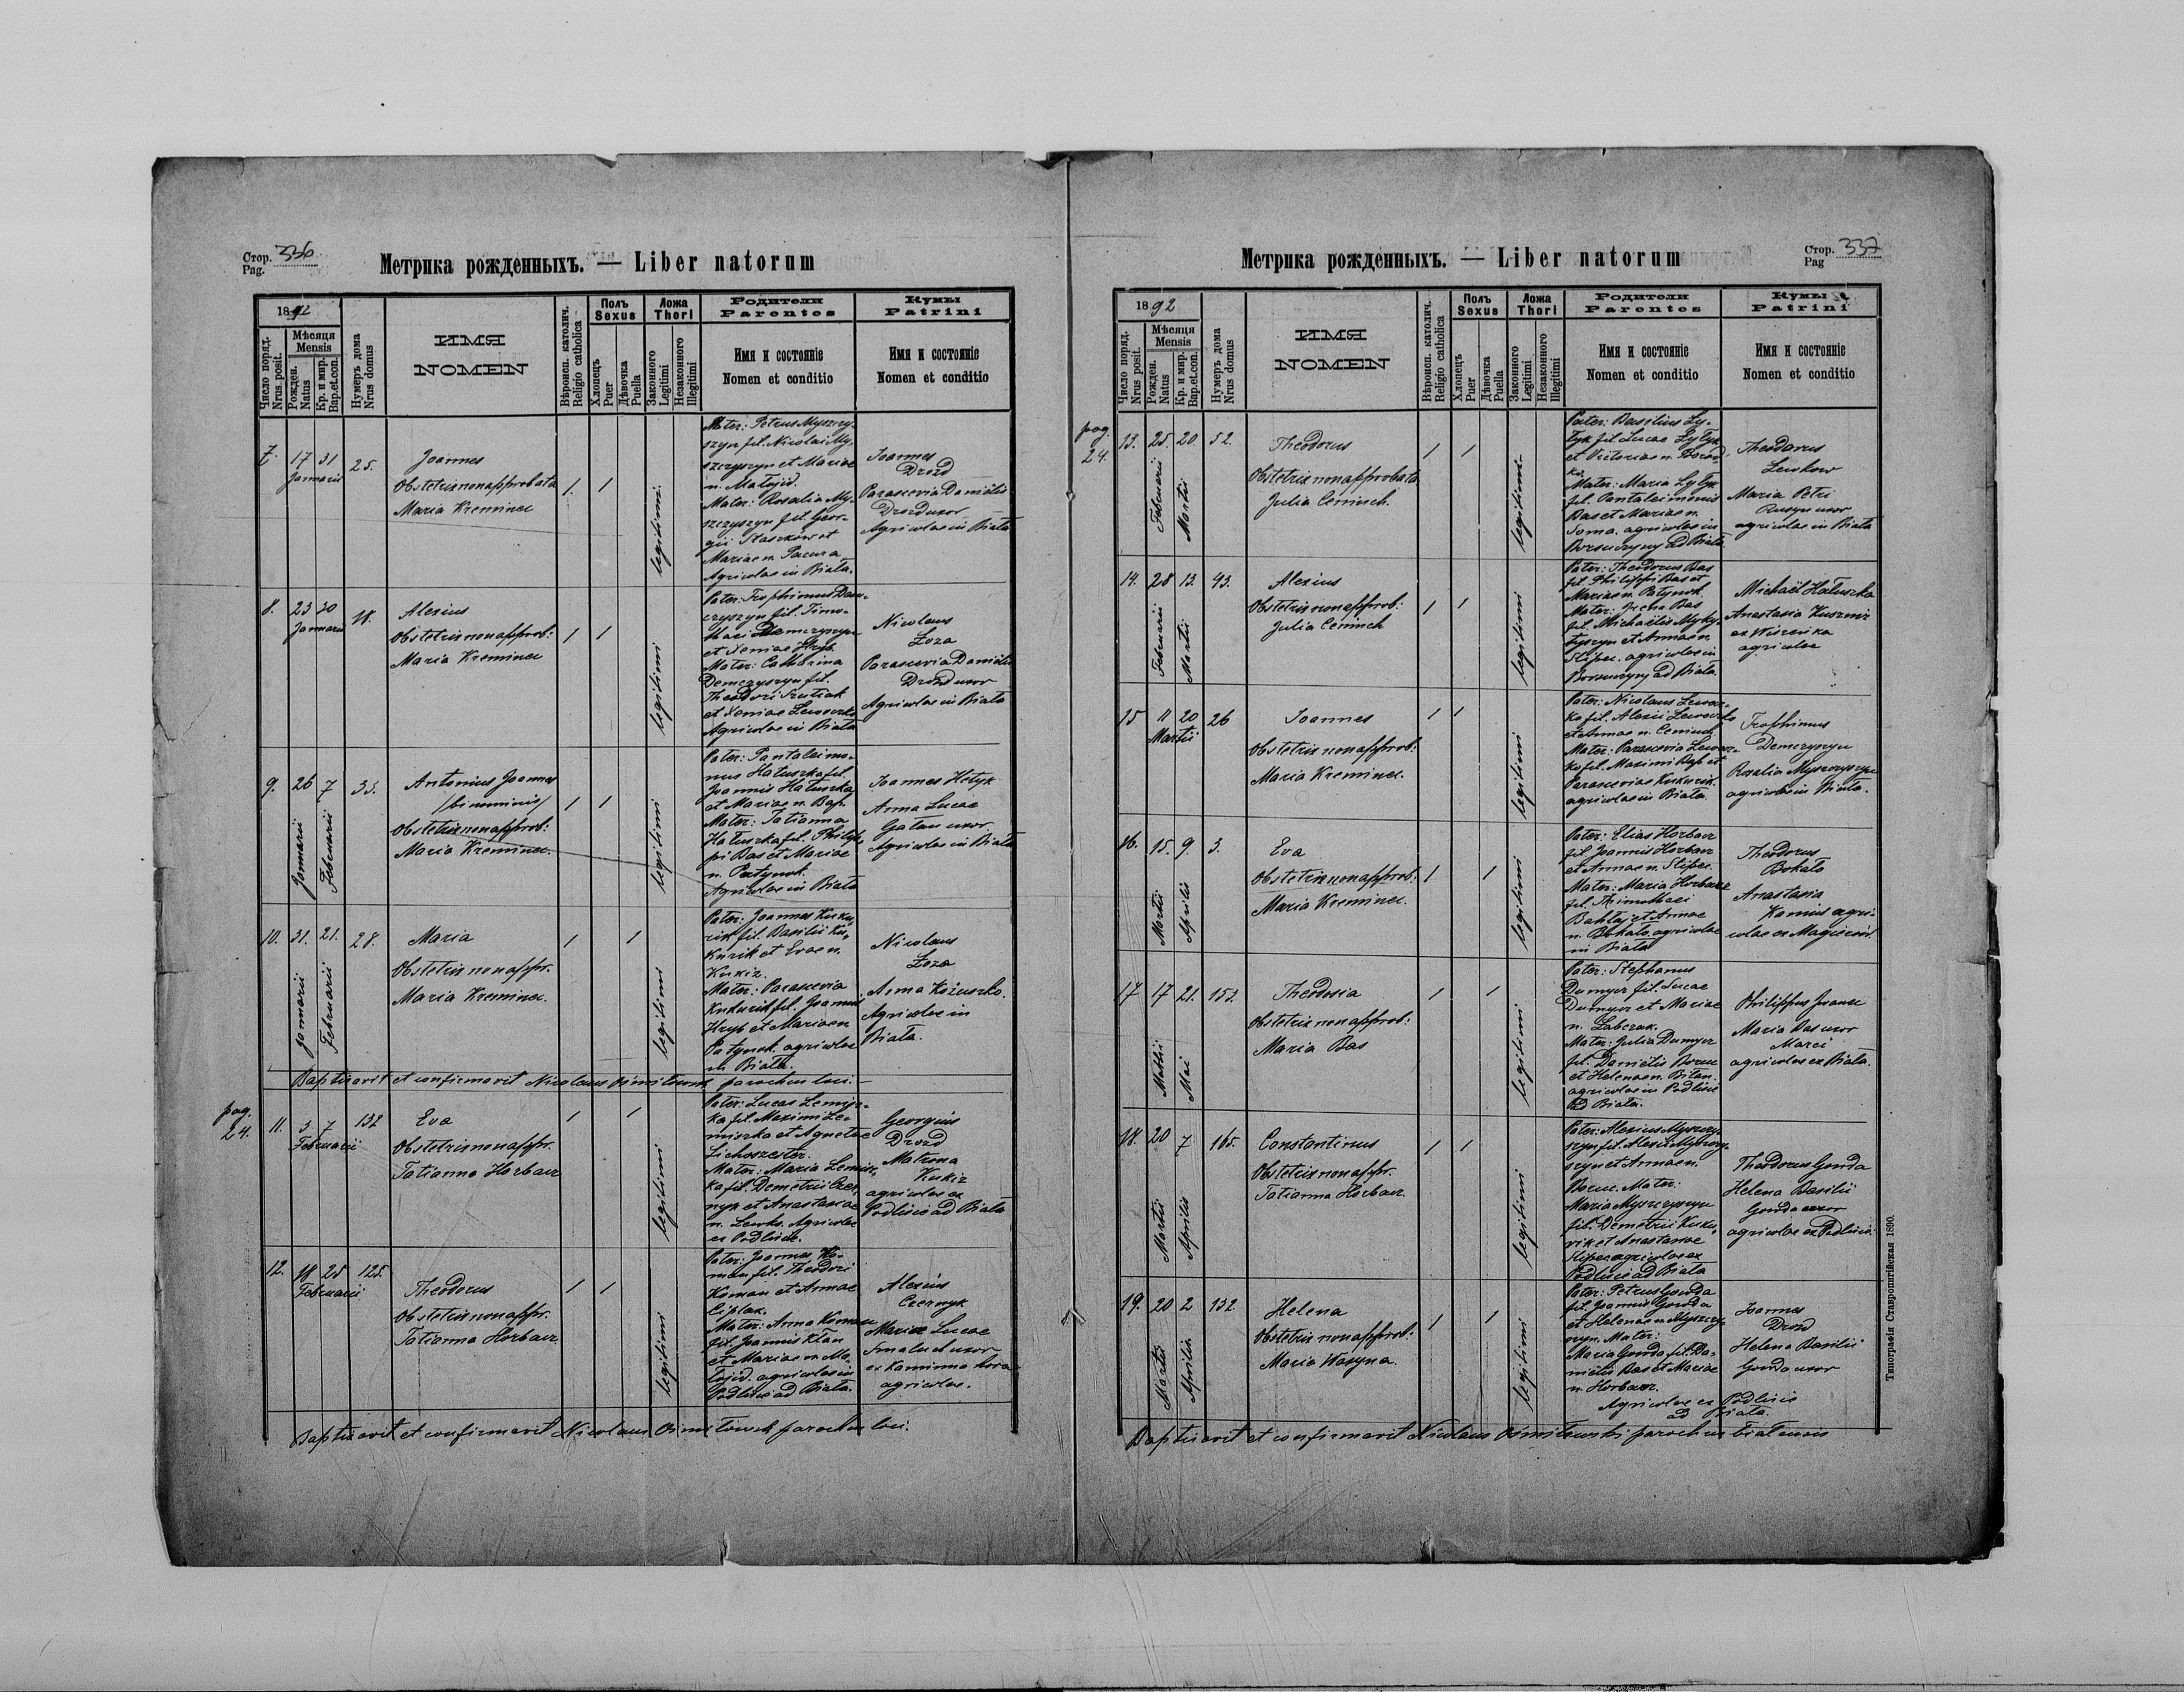 Стор. 336
Pag.
Метрика рожденныхъ. — Liber natorum
1892
Число поряд.
Nrus posit.
Мѣсяця
Mensis
Рожден.
Natus
Кр. и мир.
Bap.et.con.
Нумеръ дома
Nrus domus
ИМЯ
NOMEN
Вѣроисп. католич.
Religio catholica
Полъ
Sexus
Хлопецъ
Puer
Дѣвочка
Puella
Ложа
Thori
Законного
Legitimi
Незаконного
Illegitimi
Родители
Parentes
Имя и состояніе
Nomen et conditio
Кумы
Patrini
Имя и состояніе
Nomen et conditio
7. 17 31 25.
Januarii
Joannes
Obstetrix non approbata
Maria Kreminec
1 1
legitimi
Pater: Petrus Myszczy-
szyn fil. Nicolai My-
szczyszyn et Mariae
n. Matojid.
Mater: Rosalia My-
szczyszyn fil. Geor-
gii Staszkow et
Mariae n. Pacura
Agricolae in Biała.
Joannes
Drozd
Parascevia Danielis
Drozd uxor
Agricolae in Biała
8. 23 30 18.
Januarii
Alexius
Obstetrix non approb:
Maria Kreminec
1 1
legitimi
Pater: Trophimus Dem-
czyszyn fil. Timo-
thaei Demczyszyn
et Xeniae Hryb
Mater: Catharina
Demczyszyn fil.
Theodori
et Xeniae Lewoczko
Agricolae in Biała
Nicolaus
Łoza
Parascevia Danielis
Drozd uxor
Agricolae in Biała
9. 26 7 35.
Januarii
Februarii
Antonius Joannes
/binominis/
Obstetrix non approb:
Maria Kreminec.
1 1
legitimi
Pater: Pantaleimo-
nus Hałuszka fil.
Joannis Hałuszka
et Mariae n. Bap.
Mater: Tatianna
Hałuszka fil. Philip-
pi Bas et Mariae
n. Patynok.
Agricolae in Biała
Joannes Hetyk
Anna Lucae
Gatan uxor
Agricolae in Biała
10. 31. 21. 28.
Januarii
Februarii
Maria
Obstetrix non appr.
Maria Kreminec.
1 1
legitimi
Pater: Joannes Kuku-
rik fil. Basilii Ku-
kurik et Evae n.
Kukiz.
Mater: Parascevia
Kukurik fil. Joannis
Hryb et Mariae n.
Patynok. agricolae
in Biała.
Nicolaus
Łoza
Anna Kożuszko.
Agricolae in
Biała.
Baptisavit et confirmavit Nicolaus parochus loci.
pag.
24.
11. 3 7 132
Februarii
Eva
Obstetrix non appr.
Tatianna Horbacz
1 1
legitimi
Pater: Lucas Lemisz-
ka fil. Maximi Le-
miszka et Agnetae
Lichoszester.
Mater: Maria Lemisz-
ka fil. Demetrii Czer-
nyk et Anastasiae
n. Lewko. Agricolae
ex Podlisie.
Georgius
Drozd
Matrona
Kukiz
agricolae ex
Podlisie ad Biała
12. 18 25 125.
Februarii
Theodorus
Obstetrix non appr.
Tatianna Horbacz.
1 1
legitimi
Pater: Joannes Ko-
man fil. Theodori
Koman et Annae
Ciplak.
Mater: Anna Koman
fil. Joannis Kłan
et Mariae n. Ma-
tojid. agricolae in
Podlisie ad Biała.
Alexius
Czernyk
Maria Lucae
Smaluch uxor
ex Kaminna hora
agricolae.
Baptisavit et confirmavit Nicolaus parochus loci.
Стор. 337
Pag
Метрика рожденныхъ. — Liber natorum
1892
Число поряд.
Nrus posit.
Мѣсяця
Mensis
Рожден.
Natus
Кр. и мир.
Bap.et.con.
Нумеръ дома
Nrus domus
ИМЯ
NOMEN
Вѣроисп. католич.
Religio catholica
Полъ
Sexus
Хлопецъ
Puer
Дѣвочка
Puella
Ложа
Thori
Законного
Legitimi
Незаконного
Illegitimi
Родители
Parentes
Имя и состояніе
Nomen et conditio
Кумы
Patrini
Имя и состояніе
Nomen et conditio
pag.
24.
13. 25. 20 52.
Februarii
Martii
Theodorus
Obstetrix non approbata
Julia Ceminch.
1 1
legitimi
Pater: Basilius Ły-
łyk fil. Lucae Łyłyk
et Victoriae n. Borod-
ko
Mater: Maria Łyłyk
fil. Pantaleimonis
Bas et Mariae n.
Soma. agricolae in
Borsuczyny ad Biała
Theodorus
Lewkow
Maria Petri
Rusyn uxor
agricolae in Biała
14. 28 13. 43.
Februarii
Martii
Alexius
Obstetrix non approb:
Julia Ceminch
1 1
legitimi
Pater: Theodorus Bas
fil. Philippi Bas et
Mariae n. Patynok
Mater: Irena Bas
fil. Michaelis Myky-
tyszyn et Annae n.
Slipec. agricolae in
Borsuczyny ad Biała.
Michaël Hałuszka
Anastasia Kuszniz
ex Wiszeńka
agricolae
15 11 20 26
Martii
Joannes
Obstetrix non approb:
Maria Kreminec.
1 1
legitimi
Pater: Nicolaus Lewocz-
ko fil. Alexii Lewoczko
et Annae n. Ceminch
Mater: Parascevia Lewocz-
ko fil. Maximi Bap et
Parasceviae Kukurik.
agricolae in Biała.
Trophimus
Demczyszyn
Rosalia Myszczyszyn
agricolae in Biała.
16. 15. 9. 3.
Martii
Aprilis
Eva
Obstetrix non approb:
Maria Kreminec.
1 1
legitimi
Pater: Elias Horbacz
fil. Joannis Horbacz
et Annae n. Slipec.
Mater: Maria Horbacz
fil. Thimothaei
Bahłaj et Annae
n. Bokało. agricolae
in Biała
Theodorus
Bokało
Anastasia
Komus agri-
colae ex Magierów.
17 17 21. 153.
Martii
Mai
Theodosia
Obstetrix non approb:
Maria Bas
1 1
legitimi
Pater: Stephanus
Dumycz fil. Lucae
Dumycz et Mariae
n. Labczak.
Mater: Julia Dumycz
fil. Danielis Boruc
et Helenae n. Bitan.
agricolae in Podlisie
ad Biała.
Philippus Juanec
Maria Bas uxor
Marci
agricolae ex Biała.
18. 20 7 165.
Martii
Aprilis
Constantinus
Obstetrix non appr.
Tatianna Horbacz.
1 1
legitimi
Pater: Alexius Myszczy-
szyn fil. Alexii Myszczy-
szyn et Annae n.
Boruc. Mater:
Maria Myszczyszyn
fil. Demetrii Kuku-
rik et Anastasiae
Slipec agricolae ex
Podlisie ad Biała
Theodorus Gonda
Helena Basilii
Gonda uxor
agricolae ex Podlisie.
19. 20 2 132
Martii
Aprilis.
Helena
Obstetrix non approb:
Maria Wasyna.
1 1
legitimi
Pater: Petrus Gonda
fil. Joannis Gonda
et Helenae n. Myszczy-
szyn. Mater:
Maria Gonda fil. Da-
nielis Bas et Mariae
n. Horbacz.
Agricolae ex Podlisie
ad Biała.
Joannes
Drozd
Helena Basilii
Gonda uxor
Baptisavit et confirmavit Nicolaus parochus białensis
Типографія Ставропигійская 1890.